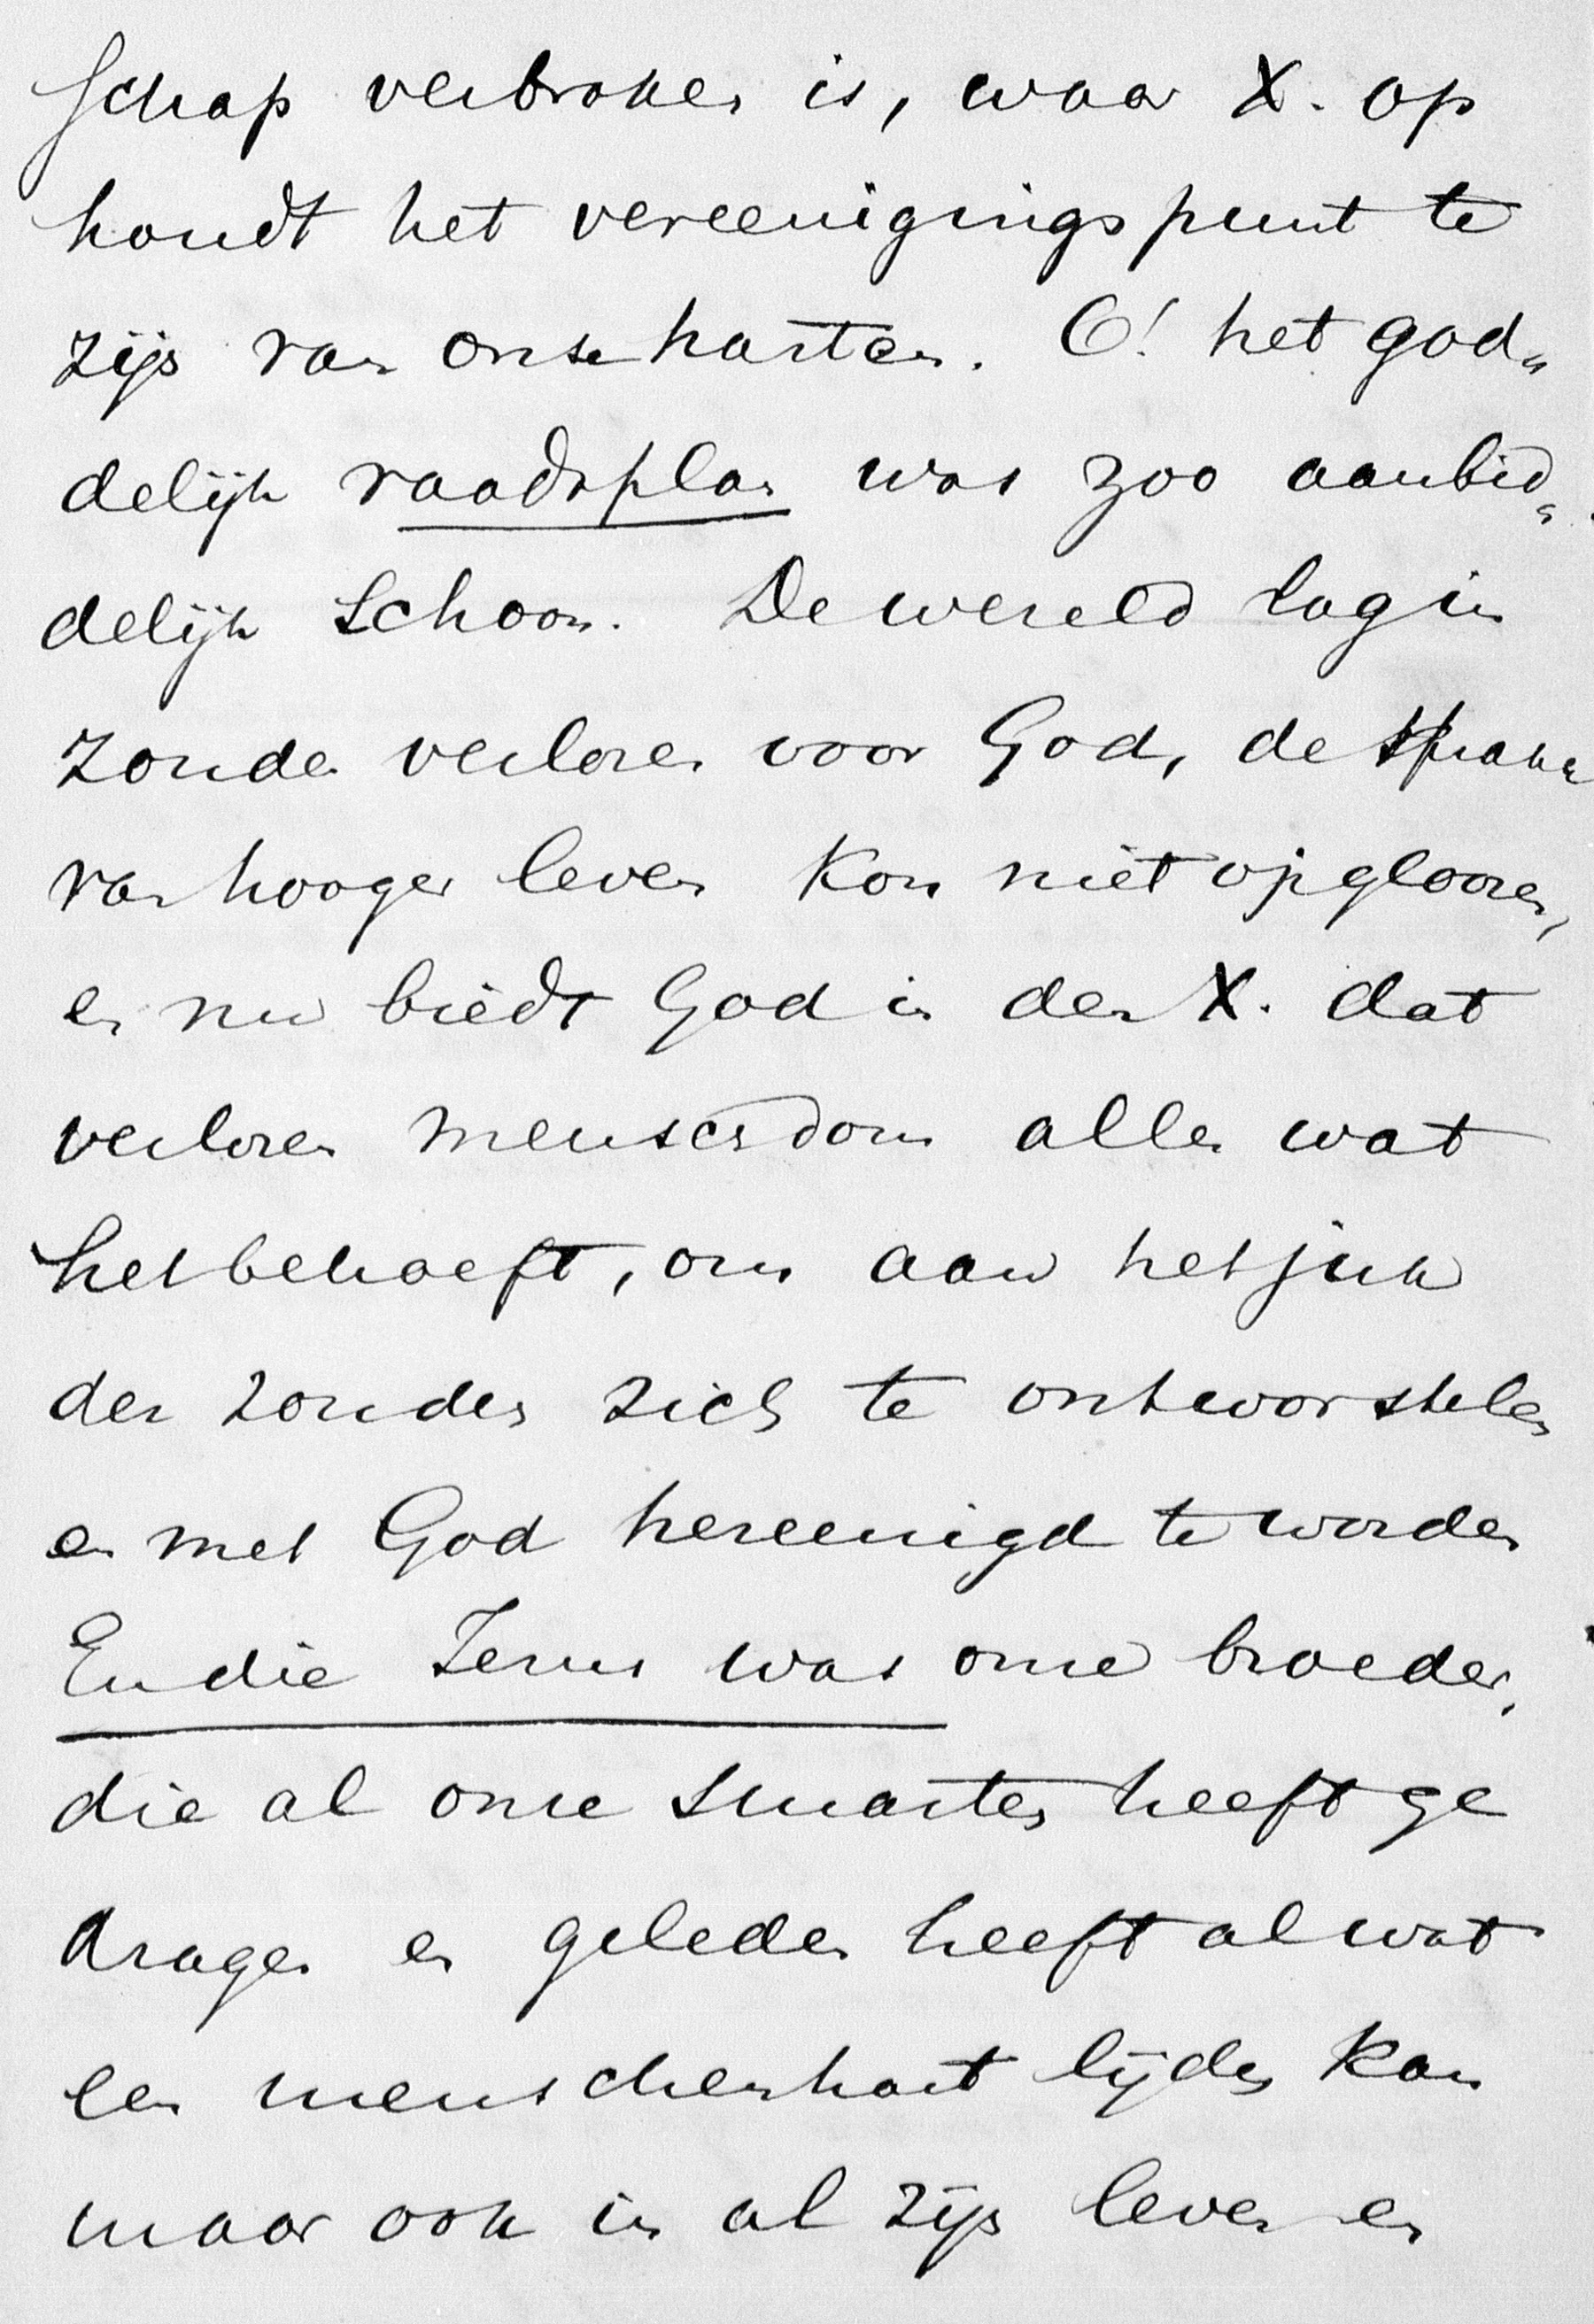 schap verbroken is, waar X. op
houdt het vereenigingspunt te
zijn van onse harten. O! het god„
delijk raadsplan was zoo aanbid„
delijk schoon. De wereld lag in
zonde verloren voor God, de spranke
van hooger leven kon niet opglooren,
en nu biedt God in den X. dat
verloren menschdom alles wat
het behoeft, om aan het juk
der zonden zich te ontworstelen
en met God hereenigd te worden
En die Jezus was onse broeder,
die al onse smarten heeft ge
dragen en geleden heeft al wat
een menschenhart lijden kan
maar ook in al zijn leven en